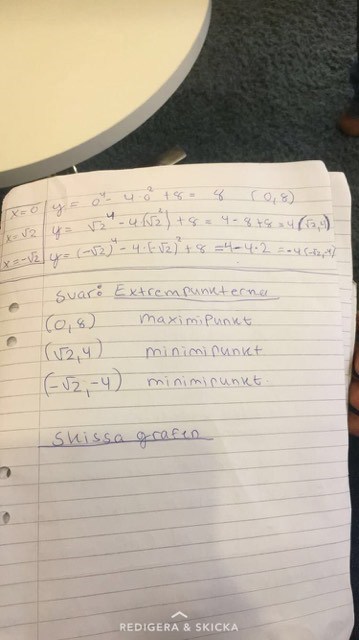 x=0 y= 0⁴ - 4·0² +8 = 8 (0,8)
x=√2 y= √2⁴ - 4(√2²) + 8 = 4 - 8 + 8 = 4 (√2,4)
x=-√2 y= (-√2)⁴ - 4·(-√2)² + 8 = 4 - 4·2 = -4 (-√2,-4)
Svar: Extrempunkterna
(0,8) maximipunkt
(√2,4) minimipunkt
(-√2,-4) minimipunkt.
Skissa grafen
REDIGERA & SKICKA